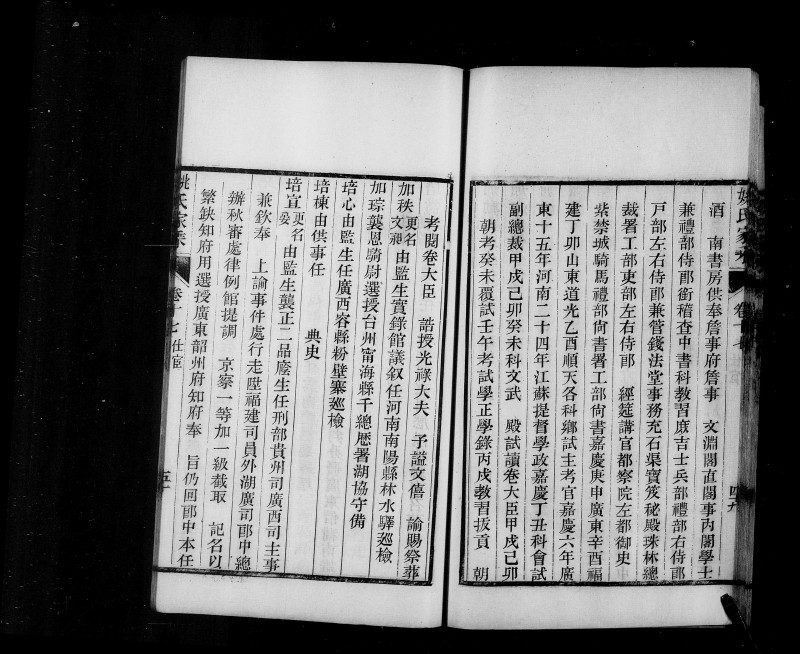 酒　南書房供奉詹事府詹事　文淵閣直閣事內閣學士
兼禮部侍郞銜稽查中書科教習庶吉士兵部禮部右侍郞
戸部左右侍郞兼管錢法堂事務充石渠寶笈秘殿珠林總
裁署工部吏部左右侍郞　經筵講官都察院左都御史
紫禁城騎馬禮部尙書署工部尙書嘉慶庚申廣東辛酉福
建丁卯山東道光乙酉順天各科鄉試主考官嘉慶六年廣
東十五年河南二十四年江蘇提督學政嘉慶丁丑科會試
副總裁甲戌己卯癸未科文武　殿試讀卷大臣甲戌己卯
朝考癸未覆試壬午考試學正學錄丙戌教習拔貢　朝
四十九
考閱卷大臣　誥授光祿大夫　予諡文僖　諭賜祭葬
加秩更名文昶由監生實錄館議叙任河南南陽縣林水驛巡檢
加琮襲恩騎尉選授台州甯海縣千總歷署湖協守備
培心由監生任廣西容縣粉壁寨巡檢
培棟由供事任　典史
培宣更名晏由監生襲正二品廕生任刑部貴州司廣西司主事
兼欽奉　上諭事件處行走陞福建司員外湖廣司郞中總
辦秋審處律例館提調　京察一等加一級截取　記名以
繁缺知府用選授廣東韶州府知府奉　旨仍回郞中本任
姚氏家乘
卷十七仕宦
五十